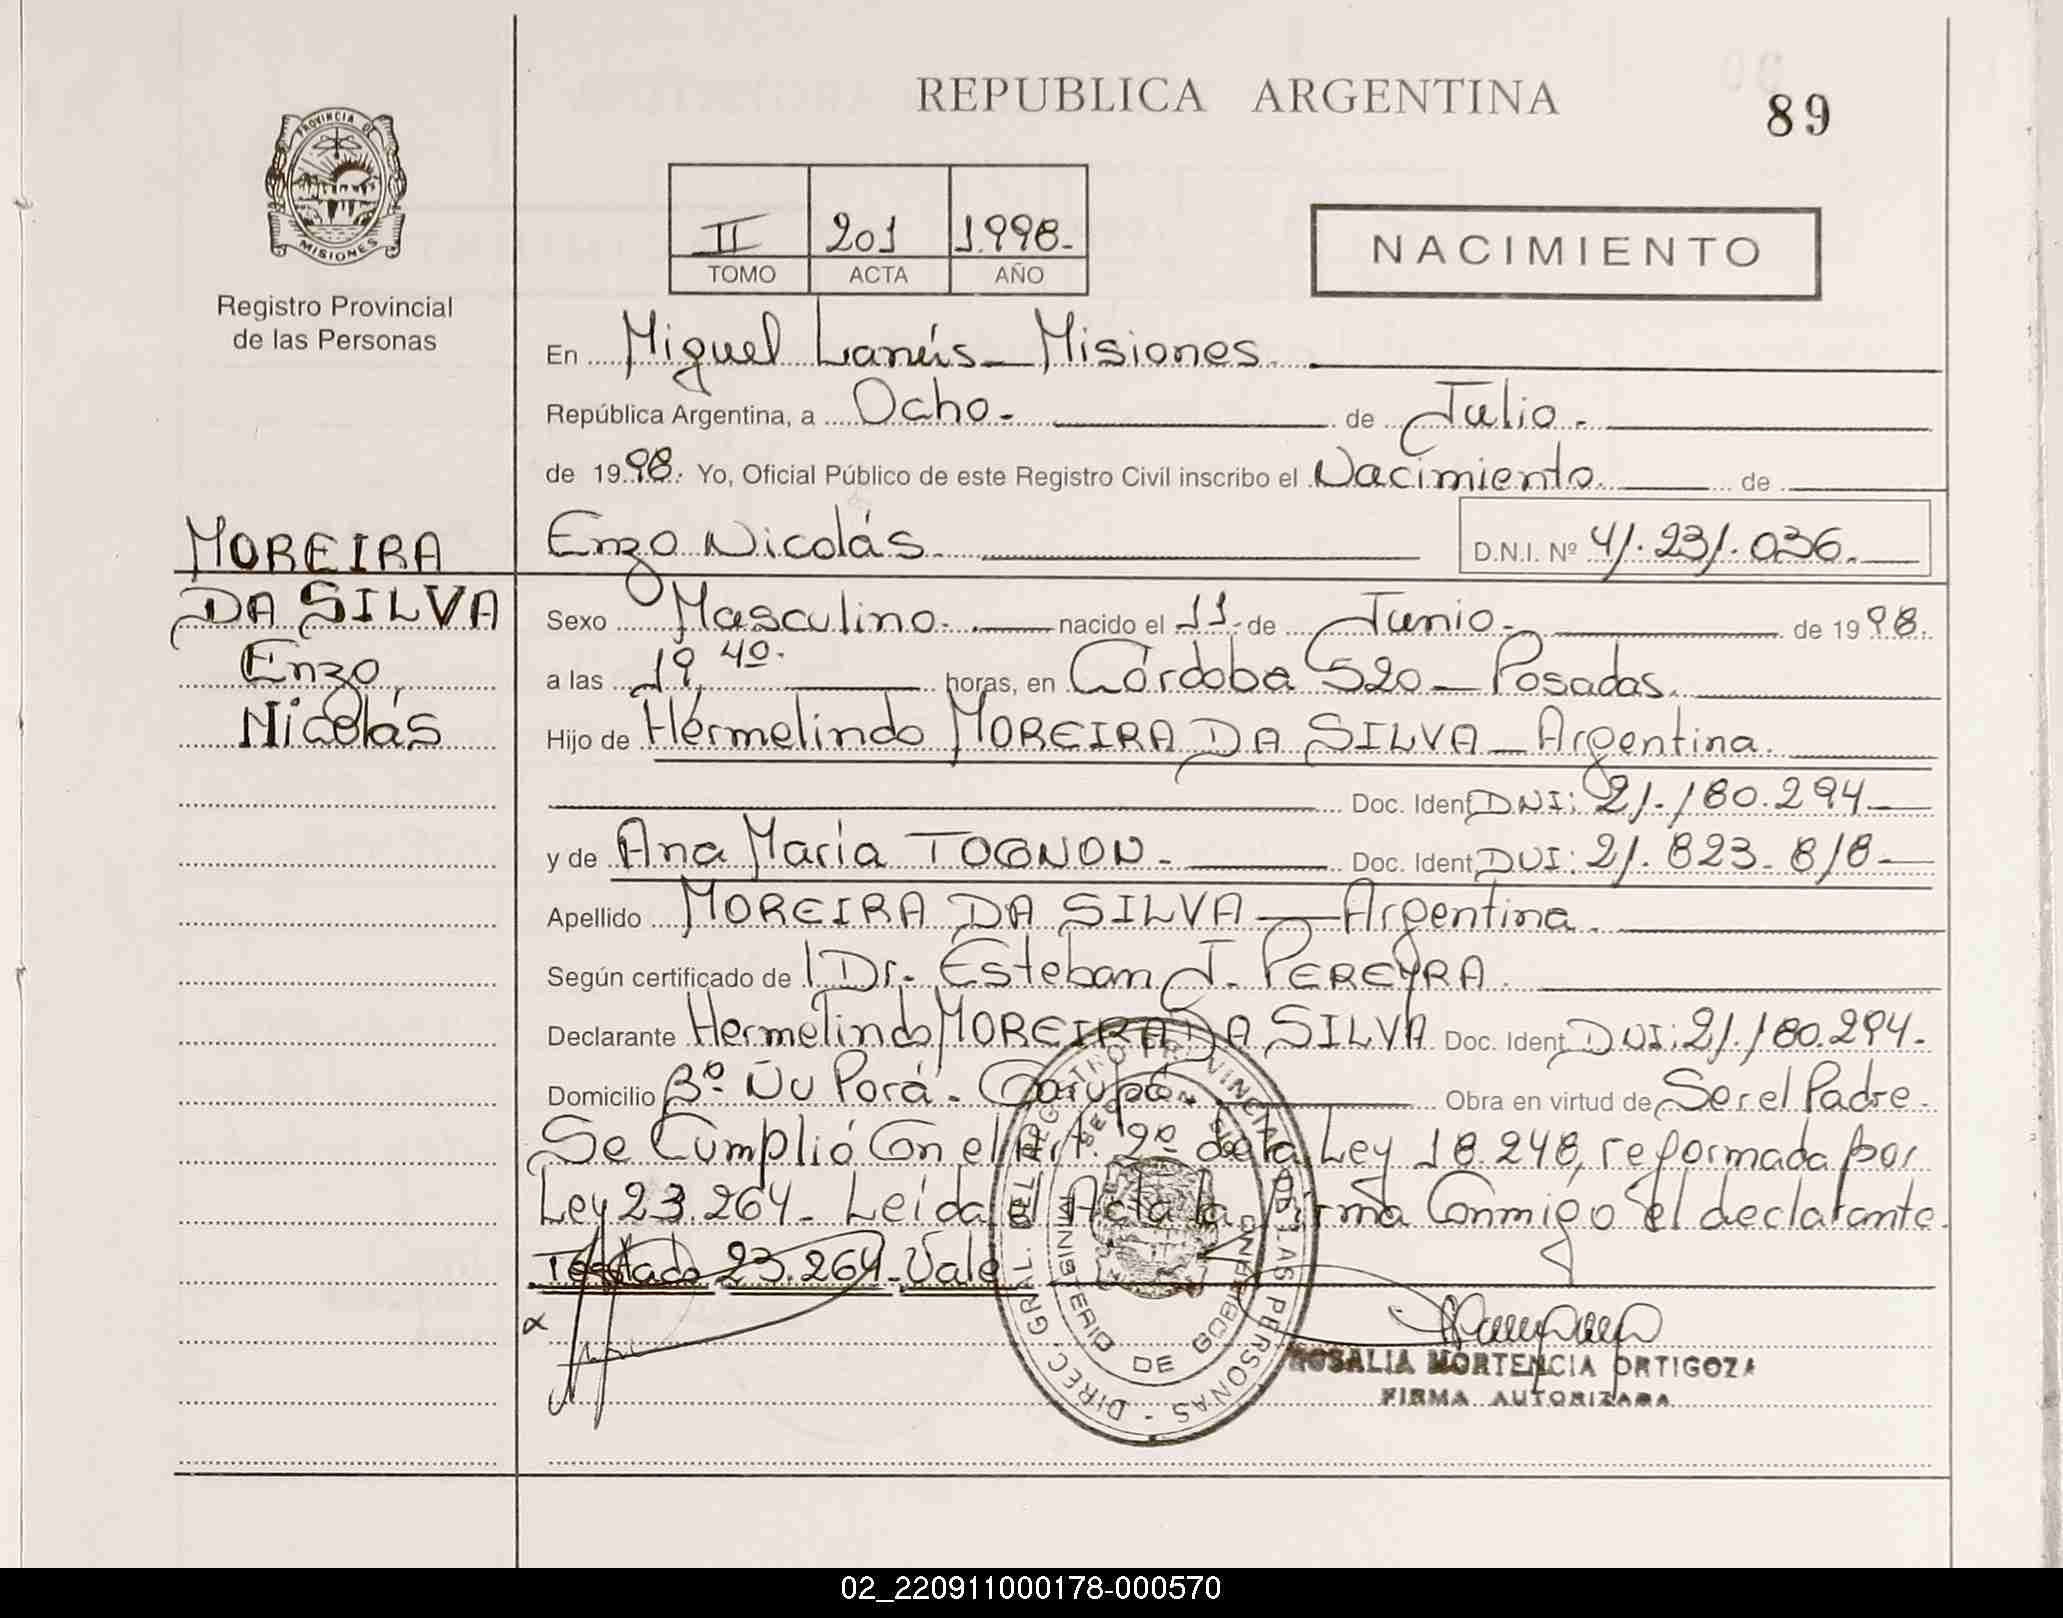 REPUBLICA ARGENTINA
89
PROVINCIA DE
MISIONES
Registro Provincial
de las Personas
II 201 1.998.-
TOMO ACTA AÑO
NACIMIENTO
En Miguel Lanús - Misiones.
República Argentina, a Ocho.- de Julio.-
de 19 98. Yo, Oficial Público de este Registro Civil inscribo el Nacimiento. de
MOREIRA
DA SILVA
Enzo
Nicolás
Enzo Nicolás. D.N.I. Nº 41.231.036.-
Sexo Masculino.- nacido el 11. de Junio.- de 19 98.
a las 19,40.- horas, en Córdoba 520 - Posadas.
Hijo de Hermelindo MOREIRA DA SILVA - Argentina.
Doc. Ident DNI: 21.180.294-
y de Ana María TOGNON.- Doc. Ident DNI: 21.823.818-
Apellido MOREIRA DA SILVA - Argentina.
Según certificado de Dr. Esteban J. PEREYRA.
Declarante Hermelindo MOREIRA DA SILVA Doc. Ident DNI: 21.180.294.-
Domicilio Bº Ñu Porá - Garupá. Obra en virtud de Ser el Padre.-
Se Cumplió Con el Art. 2º de la Ley 18.248, reformada por
Ley 23.264 - Leída el Acta la firma Conmigo el declarante.
Testado 23.264 - Vale
DIREC. GRAL. DEL REGISTRO PROVINCIAL DE LAS PERSONAS -
MINISTERIO DE GOBIERNO
ROSALIA HORTENCIA ORTIGOZA
FIRMA AUTORIZADA
02_220911000178-000570